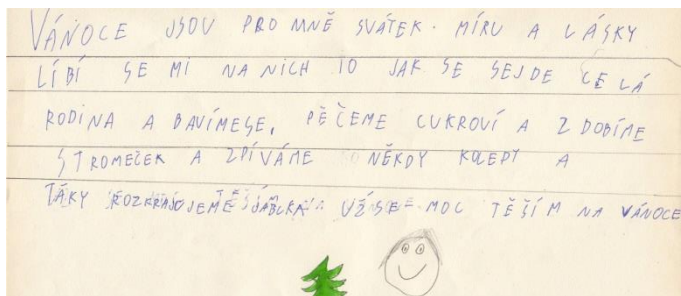 VÁNOCE JSOU PRO MNĚ SVÁTEK. MÍRU A LÁSKY
LÍBÍ SE MI NA NICH TO JAK SE SEJDE CELÁ
RODINA A BAVÍMESE, PĚČEME CUKROVÍ A ZDOBÍME
STROMEČEK A ZPÍVÁME NĚKDY KOLEDY A
TÁKY ROZKRAJOJEME JABLKA UŽSE MOC TĚŠÍM NA VÁNOCE